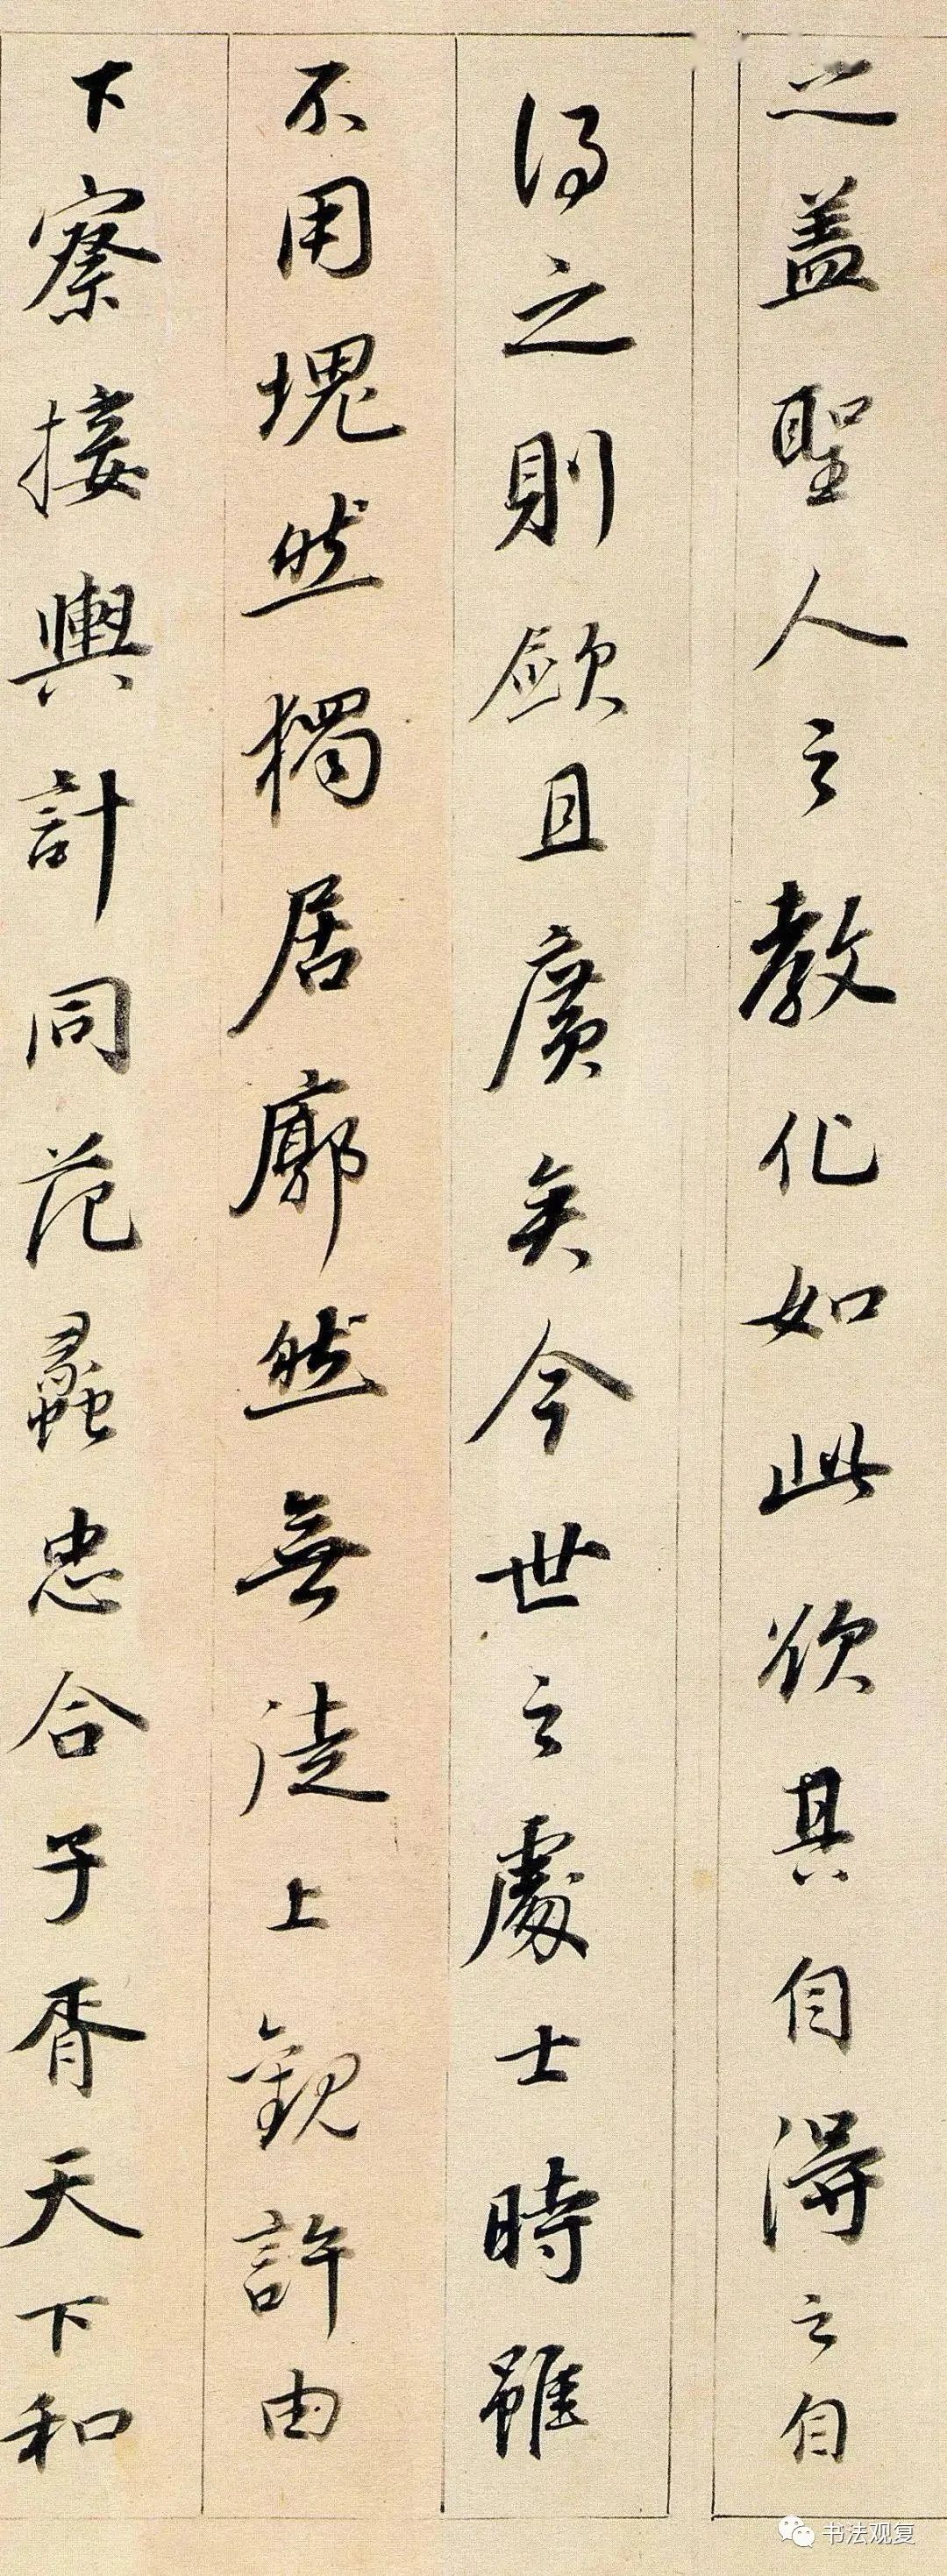 之盖聖人之教化如此欲其自得之自
得之則歛且廣矣今世之處士時雖
不用塊然獨居廓然無徒上觀許由
下察接輿計同范蠡忠合子胥天下和
书法观复